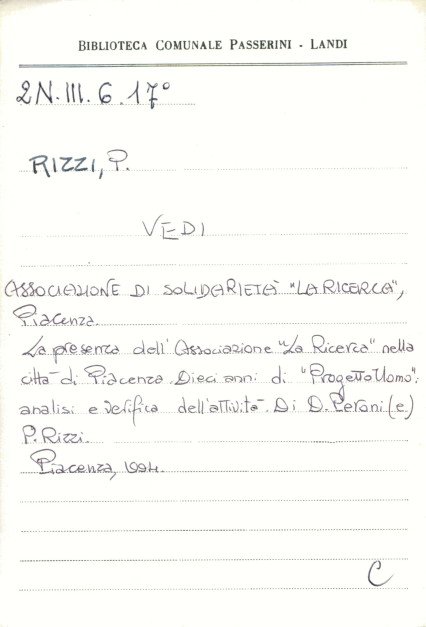 BIBLIOTECA COMUNALE PASSERINI - LANDI
2N.III.6.17°
RIZZI, P.
VEDI
ASSOCIAZIONE DI SOLIDARIETÀ "LA RICERCA",
Piacenza.
La presenza dell'Associazione "La Ricerca" nella
città di Piacenza. Dieci anni di "Progetto Uomo":
analisi e verifica dell'attività. Di D. Perani (e)
P. Rizzi.
Piacenza, 1994.
C